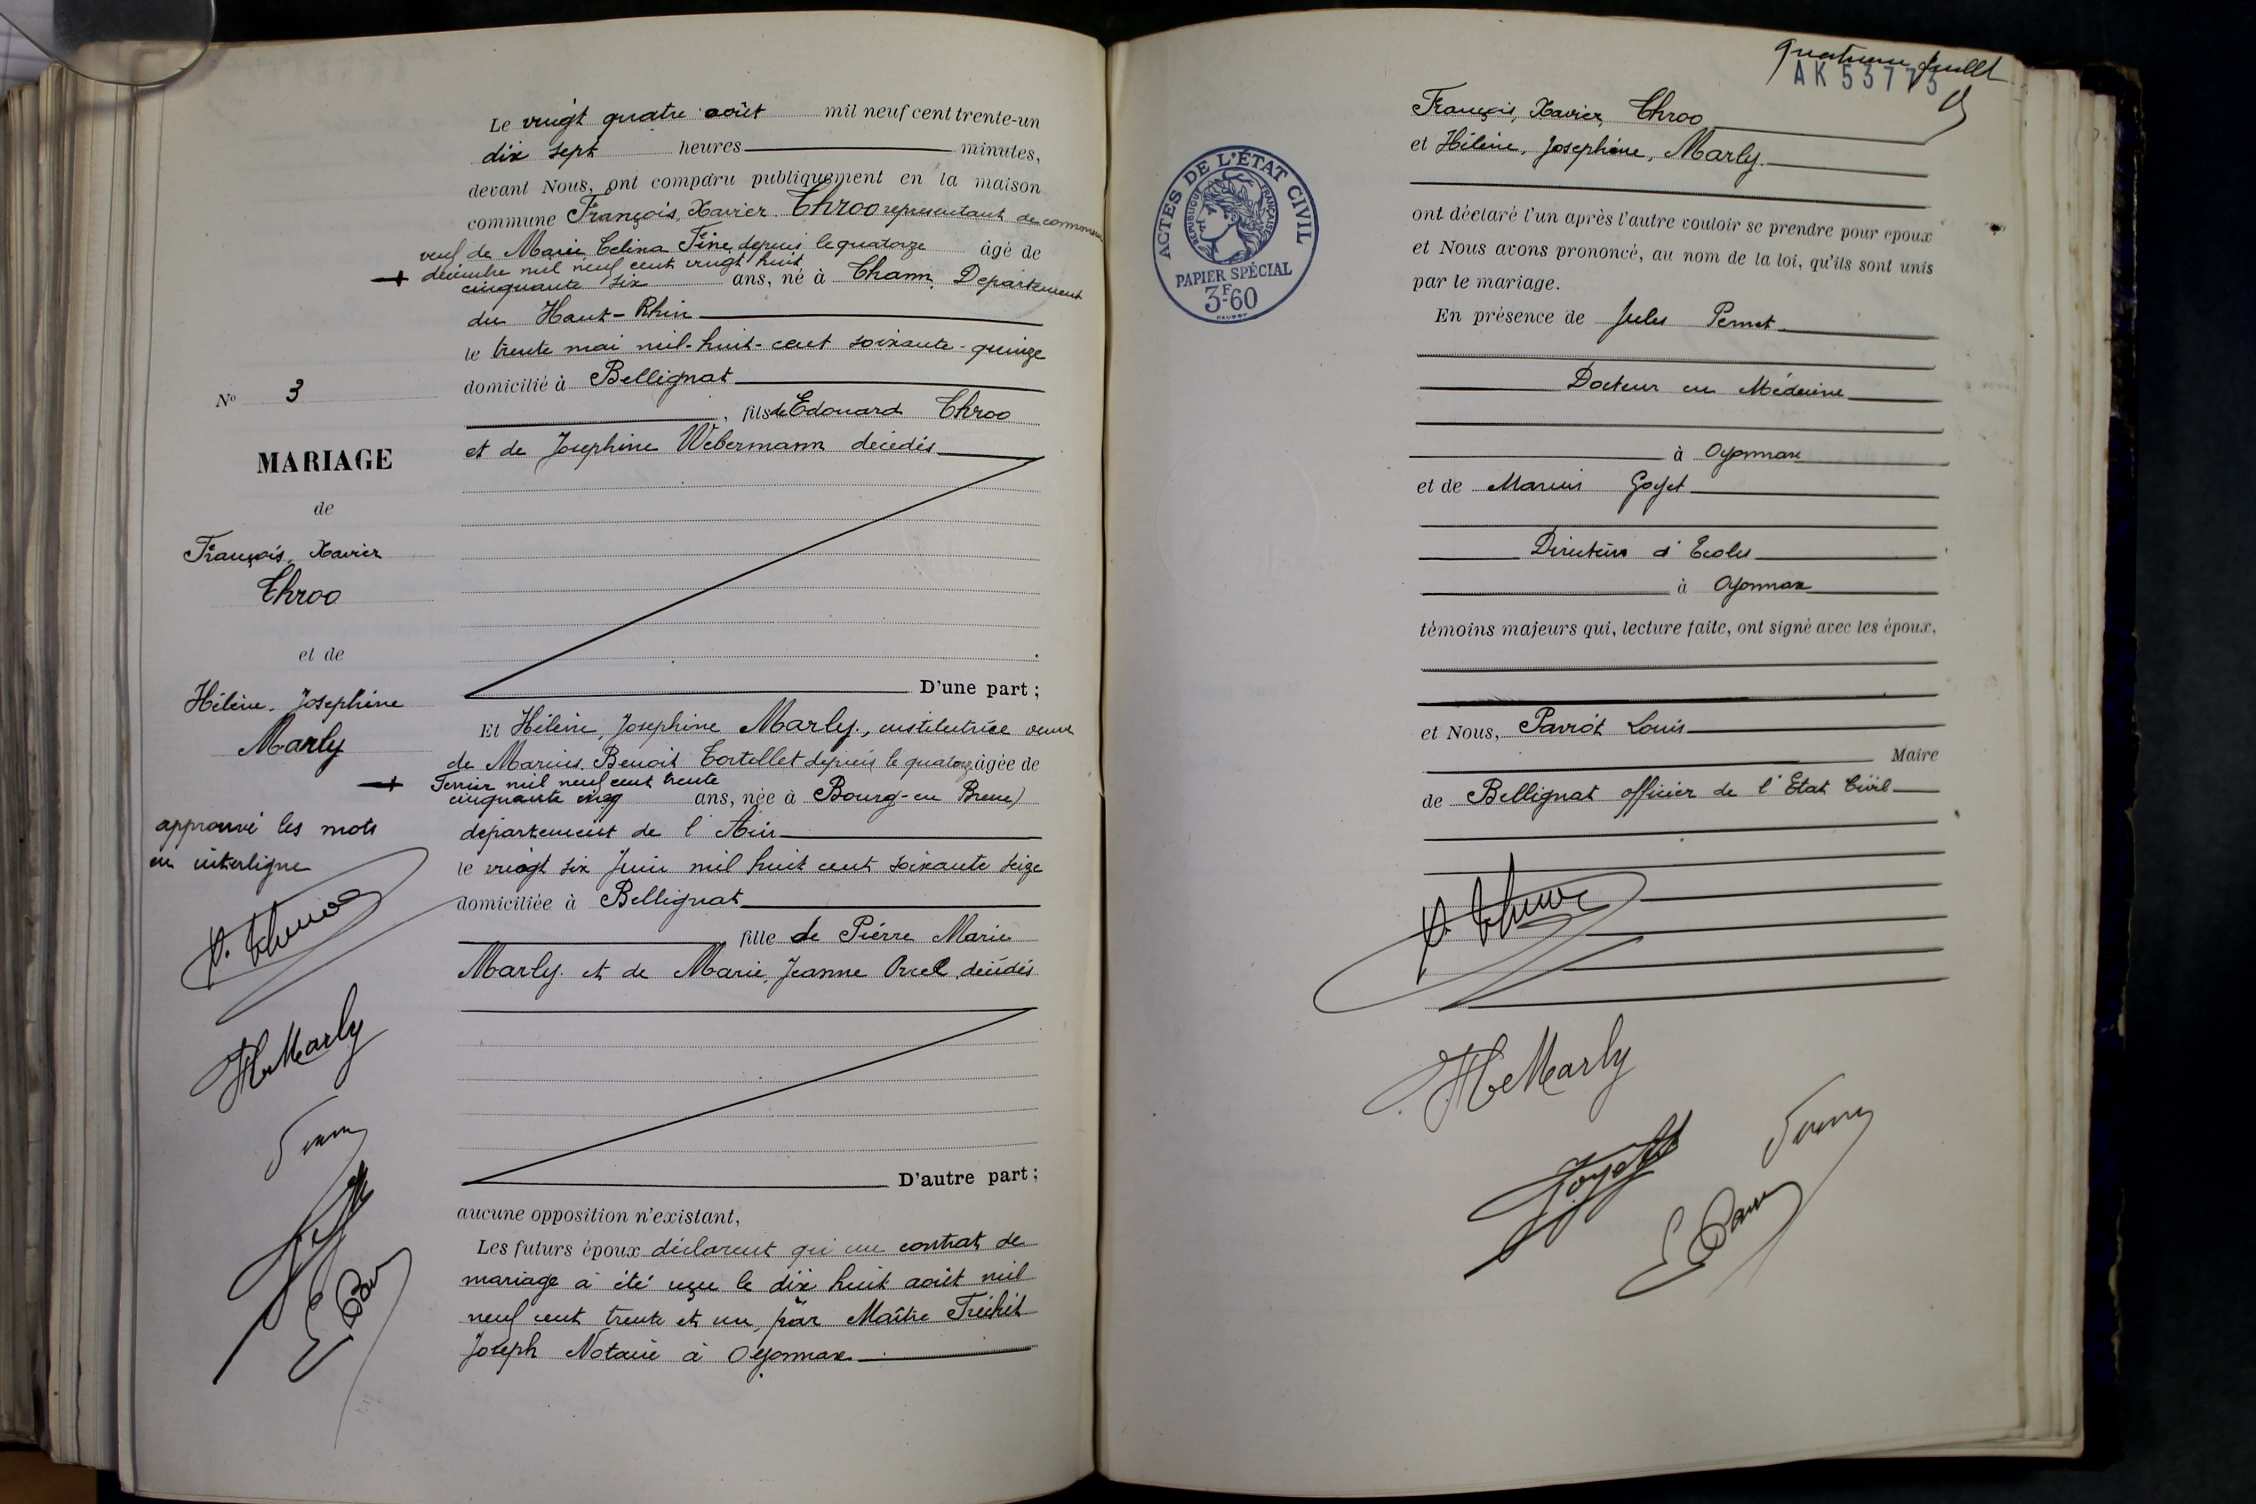 Le vingt quatre août mil neuf cent trente-un
dix sept heures minutes,
devant Nous, ont comparu publiquement en la maison
commune François, Xavier Throo représentant de commerce
veuf de Marie Celina Fine depuis le quatorze âgé de
décembre mil neuf cent vingt huit
cinquante six ans, né à Thann, Département
du Haut-Rhin
le trente mai mil-huit-cent soixante-quinze
domicilié à Bellignat
, fils de Edouard Throo
et de Josephine Webermann décédés
No 3
MARIAGE
de
François, Xavier
Throo
et de
Hélène, Joséphine
Marly
approuvé les mots
en interligne
H Marly
D'une part ;
Et Hélène, Josephine Marly, institutrice veuve
de Marius Benoit Tortellet depuis le quatorze âgée de
Fevrier mil neuf cent trente
cinquante cinq ans, née à Bourg-en Bresse)
département de l'Ain
le vingt six Juin mil huit cent soixante seize
domiciliée à Bellignat
fille de Piérre Marie
Marly et de Marie, Jeanne Orcel décédés
D'autre part ;
aucune opposition n'existant,
Les futurs époux déclarent qu'un contrat de
mariage à été reçu le dix huit août mil
neuf cent trente et un, par Maître Fréchet
Joseph Notaire à Oyonnax
quatrième feuillet
AK 53773
François, Xavier, Throo
et Hélène, Josephine, Marly
ACTES DE L'ÉTAT CIVIL
RÉPUBLIQUE FRANÇAISE
PAPIER SPÉCIAL
3F-60
ont déclaré l'un après l'autre vouloir se prendre pour époux
et Nous avons prononcé, au nom de la loi, qu'ils sont unis
par le mariage.
En présence de Jules Pernet
Docteur en Médecine
à Oyonnax
et de Marius Goyet
Directeur d'Ecoles
à Oyonnax
témoins majeurs qui, lecture faite, ont signé avec les époux,
et Nous, Pavrot Louis
Maire
de Bellignat officier de l'Etat Civil
H Marly
Goyet